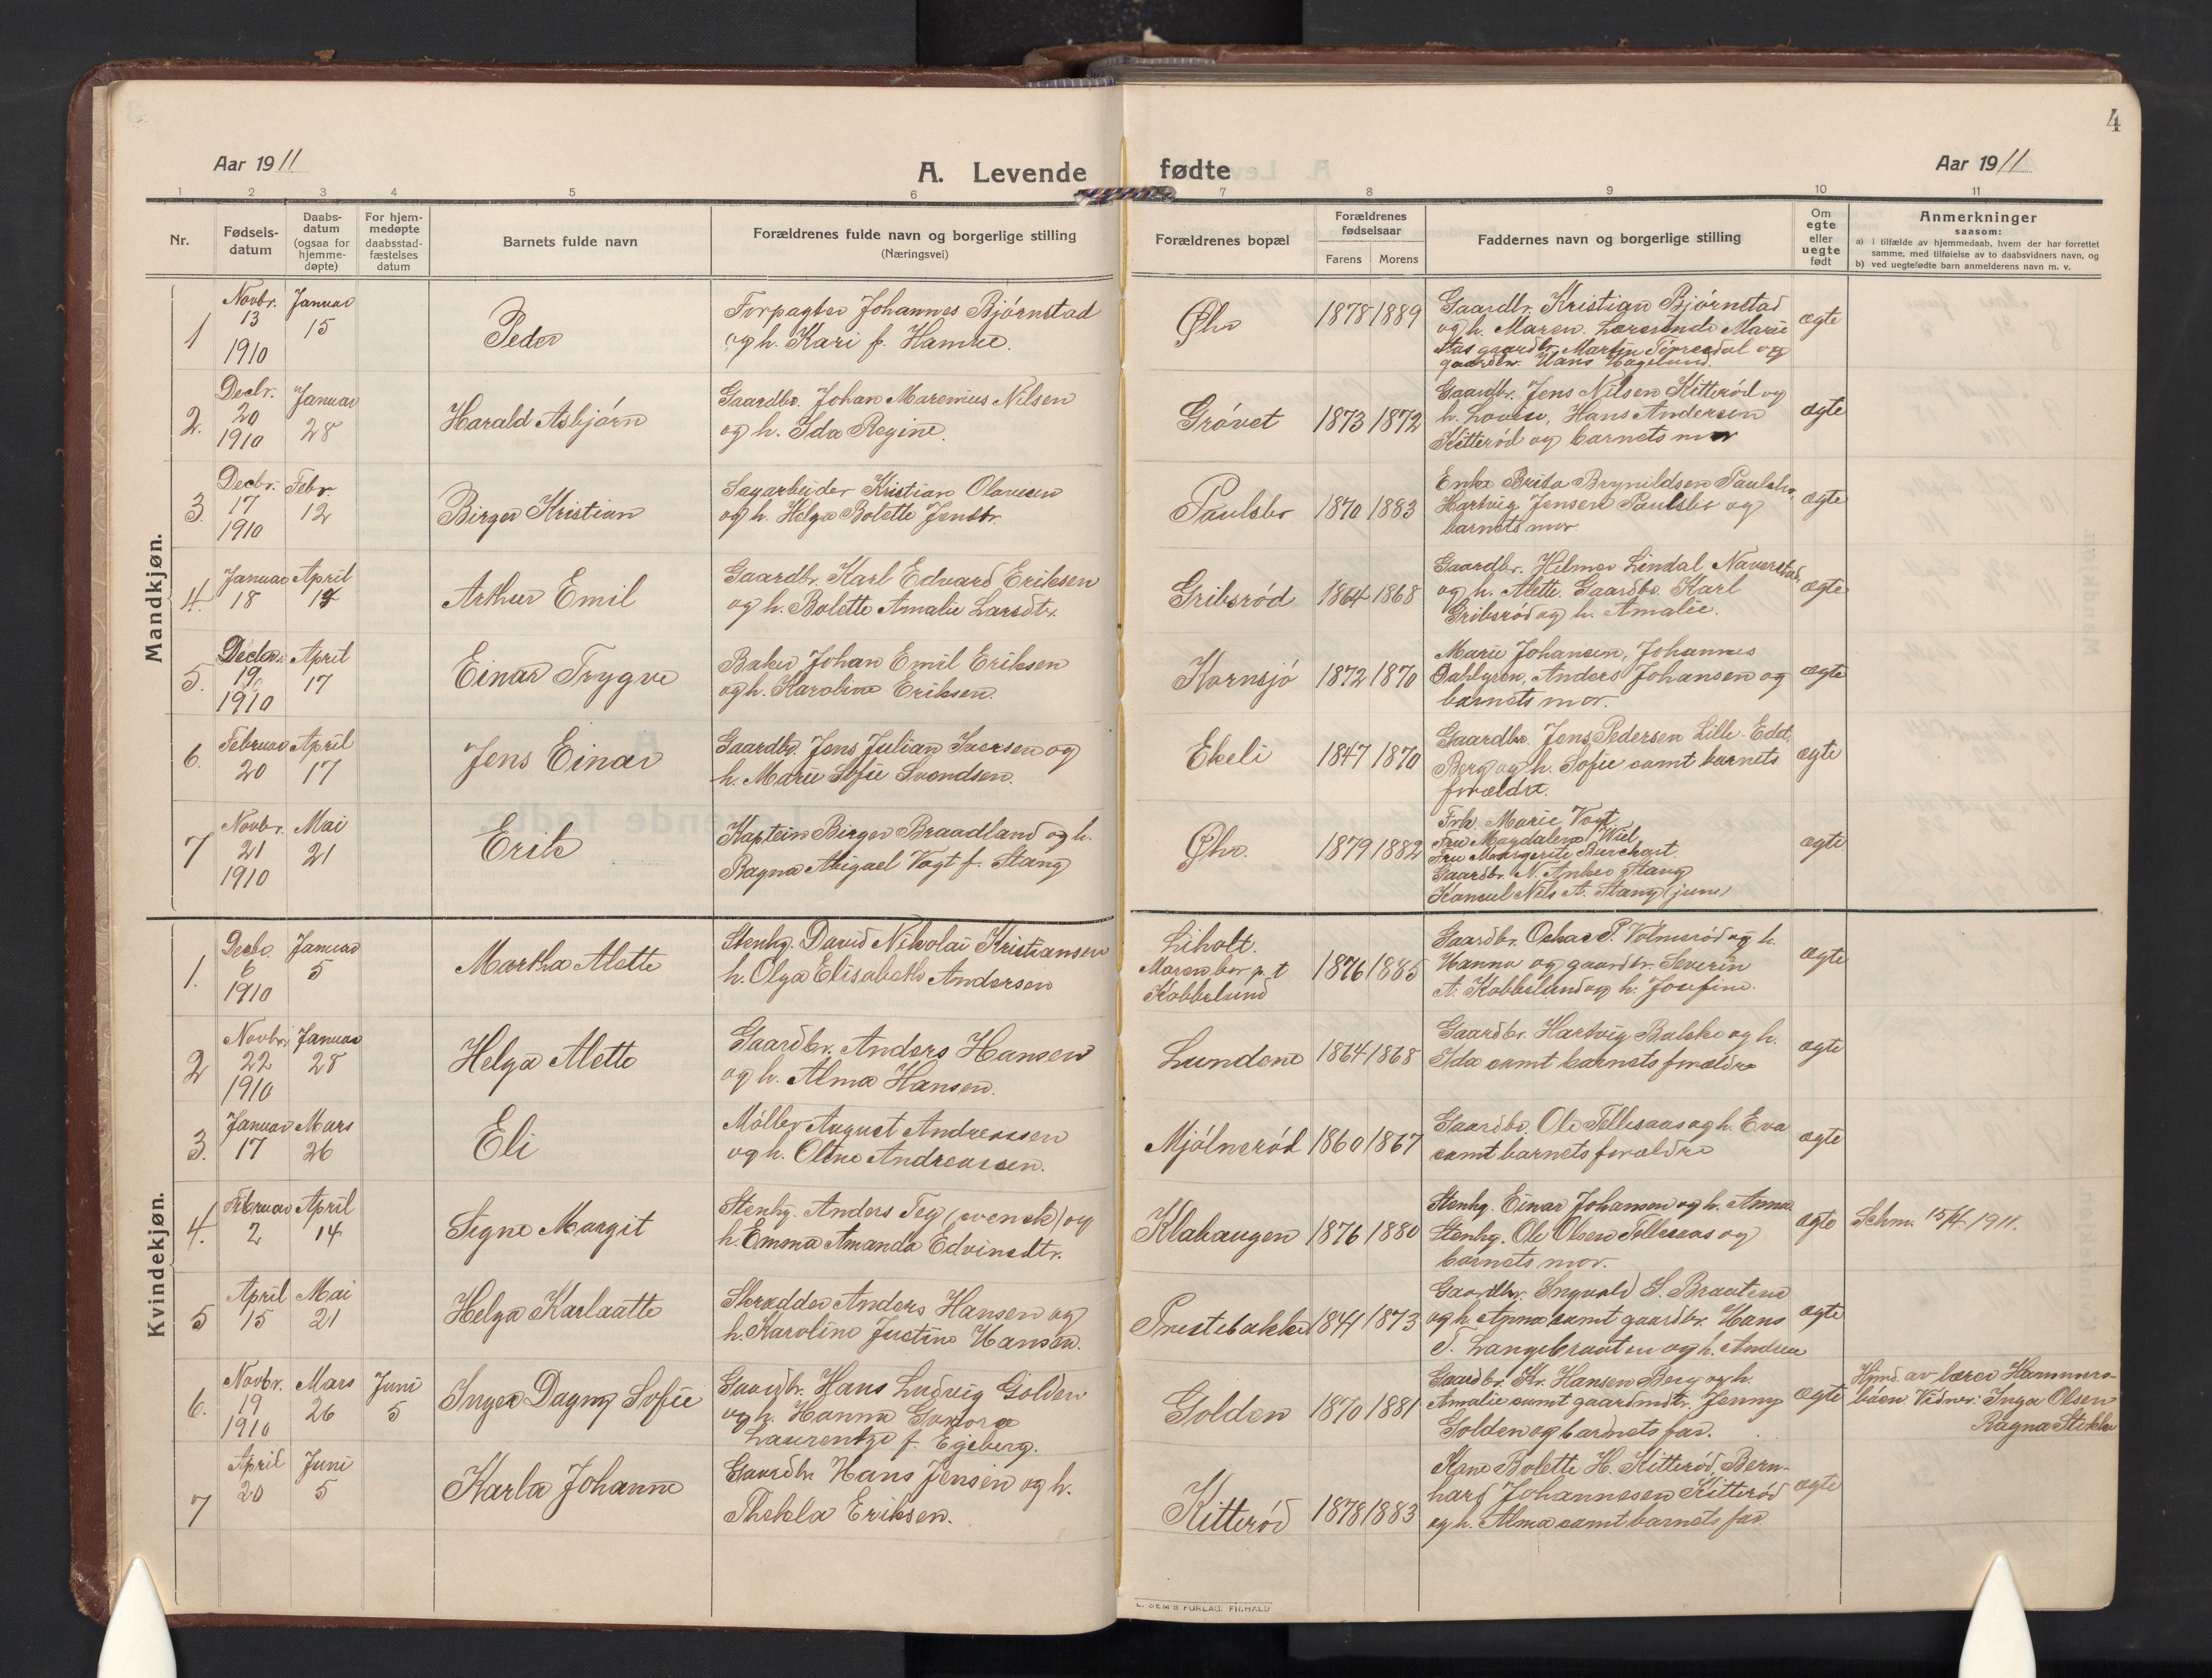 4
Aar 1911
A. Levende fødte
Aar 1911
1 2 3 4 5 6 7 8 9 10 11
Nr.
Fødsels-
datum
Daabs-
datum
(ogsaa for
hjemme-
døpte)
For hjem-
medøpte
daabsstad-
fæstelses
datum
Barnets fulde navn
Forældrenes fulde navn og borgerlige stilling
(Næringsvei)
Forældrenes bopæl
Forældrenes
fødselsaar
Farens Morens
Faddernes navn og borgerlige stilling
Om
egte
eller
uegte
født
Anmerkninger
saasom:
a) i tilfælde av hjemmedaab, hvem der har forrettet
samme, med tilføielse av to daabsvidners navn, og
b) ved uegtefødte barn anmelderens navn m. v.
Mandkjøn.
1
Novbr.
13
1910
Januar
15
Peder
Forpagter Johannes Bjørnstad
og h. Kari f. Hamre.
Øhr
1878 1889
Gaardbr. Kristian Bjørnstad
og h. Maren. Lærerinde Marie
Aas gaardbr. Martin Tørresdal og
gaardbr. Hans Hagelund.
ægte
2.
Decbr.
20
1910
Januar
28
Harald Asbjørn
Gaardbr. Johan Maremius Nilsen
og h. Ida Regine.
Grøvet
1873 1872
Gaardbr. Jens Nilsen Kitterød og
h. Lovise, Hans Andersen
Kitterød og barnets mor
ægte
3.
Decbr.
17
1910
Febr.
12
Birger Kristian
Sagarbeider Kristian Olavesen
og h. Helga Bolette Jensdtr.
Paulsbo
1870 1883
Enke Brita Brynildsen Paulsbo,
Hartvig Jensen Paulsbo og
barnets mor.
ægte
4.
Januar
18
April
17
Arthur Emil
Gaardbr. Karl Edvard Eriksen
og h. Bolette Amalie Larsdtr.
Gribsrød
1864 1868
Gaardbr. Hilmer Lindal Naverstad
og h. Alette. Gaardbr. Karl
Gribsrød og h. Amalie.
ægte
5.
Decbr.
19
1910
April
17
Einar Trygve
Baker Johan Emil Eriksen
og h. Karoline Eriksen.
Kornsjø
1872 1870
Marie Johansen, Johannes
Dahlgren, Anders Johansen og
barnets mor.
ægte
6.
Februar
20
April
17
Jens Einar
Gaardbr. Jens Julian Iversen og
h. Marie Sofie Svendsen.
Ekeli
1847 1870
Gaardbr. Jens Pedersen Lille-Edd.
Berg og h. Sofie samt barnets
forældre.
ægte
7
Novbr.
21
1910
Mai
21
Erik
Kaptein Birger Braadland og h.
Ragna Abigael Vogt f. Stang
Øhr.
1879 1882
Frk. Marie Vogt
Fru Magdalena Wiel
Fru Margerite Burchart.
Gaardbr. N. Anker Stang
Konsul Nils A. Stang (jun.)
ægte
Kvindekjøn.
1.
Decbr.
6
1910
Januar
5
Martha Alette
Stenhg. David Nikolai Kristiansen
h. Olga Elisabeth Andersen
Liholt.
Moren bor p.t
Kobbelund
1876 1885
Gaardbr. Oskar P. Volmerød og h.
Hanna og gaardbr. Severin
A. Kobbelund og h. Josefine.
ægte
2
Novbr.
22
1910
Januar
28
Helga Alette
Gaardbr. Anders Hansen
og h. Alma Hansen.
Lundene
1864 1868
Gaardbr. Hartvig Balske og h.
Ida samt barnets forældre
ægte
3.
Januar
17
Mars
26
Eli
Møller August Andreassen
og h. Oline Andreassen.
Mjølnerød
1860 1867
Gaardbr. Ole Tellesaas og h. Eva
samt barnets forældre
ægte
4.
Februar
2
April
14
Signe Margit
Stenhg. Anders Teg (svensk) og
h. Emma Amanda Edvinsdtr.
Klahaugen
1876 1880
Stenhg. Einar Johansen og h. Anna
Stenhg. Ole Olsen Tellesaas og
barnets mor.
ægte
Schm. 15/4 1911.
5
April
15
Mai
21
Helga Karlaatte
Skrædder Anders Hansen og
h. Karoline Justine Hansen.
Prestebakke
1841 1873
Gaardbr. Ingvald S. Braatene
og h. Anna samt gaardbr. Hans
T. Langebraaten og h. Andrea
ægte
6.
Novbr.
19
1910
Mars
26
Juni
5
Inger Dagny Sofie
Gaardbr. Hans Ludvig Golden
og h. Hanna
Laurentze f. Egeberg.
Golden
1870 1881
Gaardbr. Kr. Hansen Berg og h.
Amalie samt gaardmdtr. Jenny
Golden og barnets far.
ægte
Hjmd. av lærer Hammers-
bøen Vidner: Inga Olsen
Ragna Stokke
7
April
20
Juni
5
Karla Johanne
Gaardbr Hans Jensen og h.
Thekla Eriksen.
Kitterød
1878 1883
Kone Bolette H. Kitterød, Bern-
hard Johannesen Kitterød
og h. Alma samt barnets far
ægte